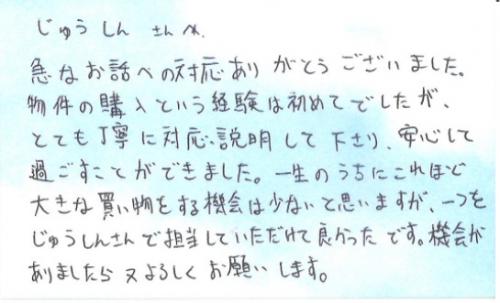 じゅうしん さんへ
急なお話への対応ありがとうございました。
物件の購入という経験は初めてでしたが、
とても丁寧に対応、説明して下さり、安心して
過ごすことができました。一生のうちにこれほど
大きな買い物をする機会は少ないと思いますが、一つを
じゅうしんさんで担当していただけて良かったです。機会が
ありましたら又よろしくお願いします。